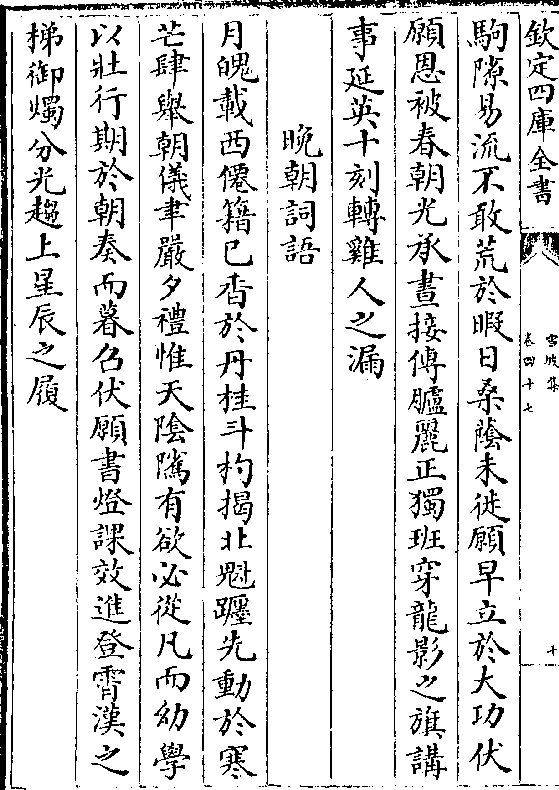 欽定四庫全書
雪坡集
卷四十七
十
駒隙易流不敢荒於暇日桑蔭未徙願早立於大功伏
願恩被春朝光承晝接傳臚麗正獨班穿龍影之旗講
事延英十刻轉雞人之漏
晚朝詞語
月魄載西僊籍已香於丹桂斗杓揭北魁躔先動於寒
芒肆舉朝儀聿嚴夕禮惟天陰隲有欲必從凡而幼學
以壯行期於朝奏而暮召伏願書燈課效進登霄漢之
梯御燭分光趨上星辰之履